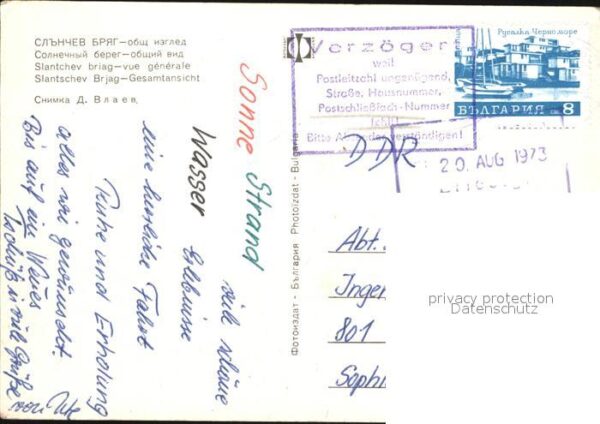 СЛЪНЧЕВ БРЯГ—общ изглед
Солнечный берег—общий вид
Slantchev briag—vue générale
Slantschev Brjag—Gesamtansicht
Снимка Д. Влаев
Sonne Strand
Wasser
viele schöne
Erlebnisse
eine herrliche Fahrt
Ruhe und Erholung
alles wie gewünscht.
Bis auf ein
viele Grüße
von
Фотоиздат - България Photoizdat - Bulgaria
Verzögert
weil
Postleitzahl ungenügend,
Straße, Hausnummer,
Postschließfach-Nummer
fehlt
Bitte Absender verständigen!
Русалка Черно море
БЪЛГАРИЯ 8
20 AUG 1973
DDR
Abt.
Inger
801
Sophi
privacy protection
Datenschutz